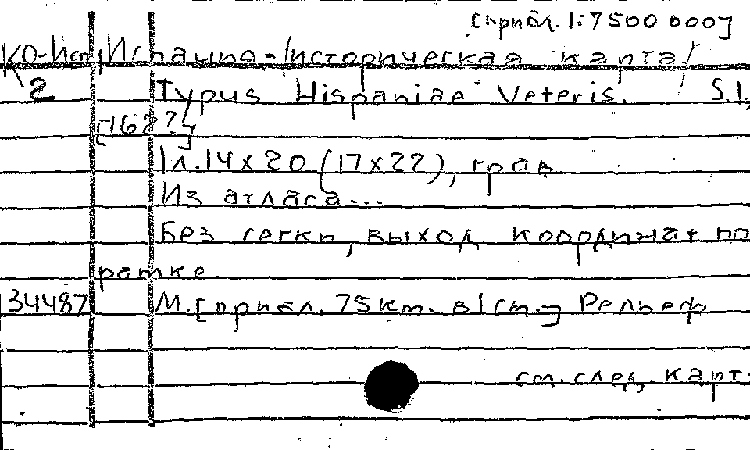 [прибл. 1:7500 000]
КО-Ист, Испания-/историческая карта/
2 Typus Hispaniae Veteris. S.l,
[162?]
1л. 14x20 (17x22), грав
Из атласа...
Без сетки, выход координат по
рамке.
34487 М. [прибл. 75км. в 1см.] Рельеф
см. след. карт.